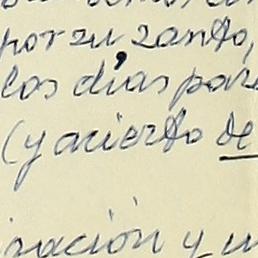 por su santo,
los días par
(y acierto de
zación y un